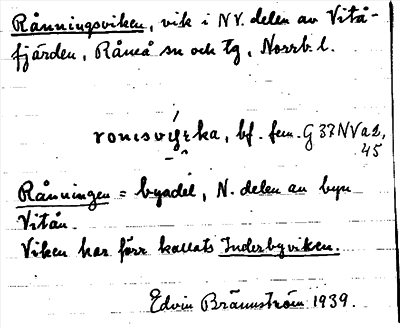 Rånningsviken, vik i NV. delen av Vitå-
fjärden, Råneå sn och tg, Norrb. l.
bf. fem. G 37NVa2,
45
Rånningen = byadel, N. delen av byn
Vitån.
Viken har förr kallats Inderbyviken.
Edvin Brännström 1939.